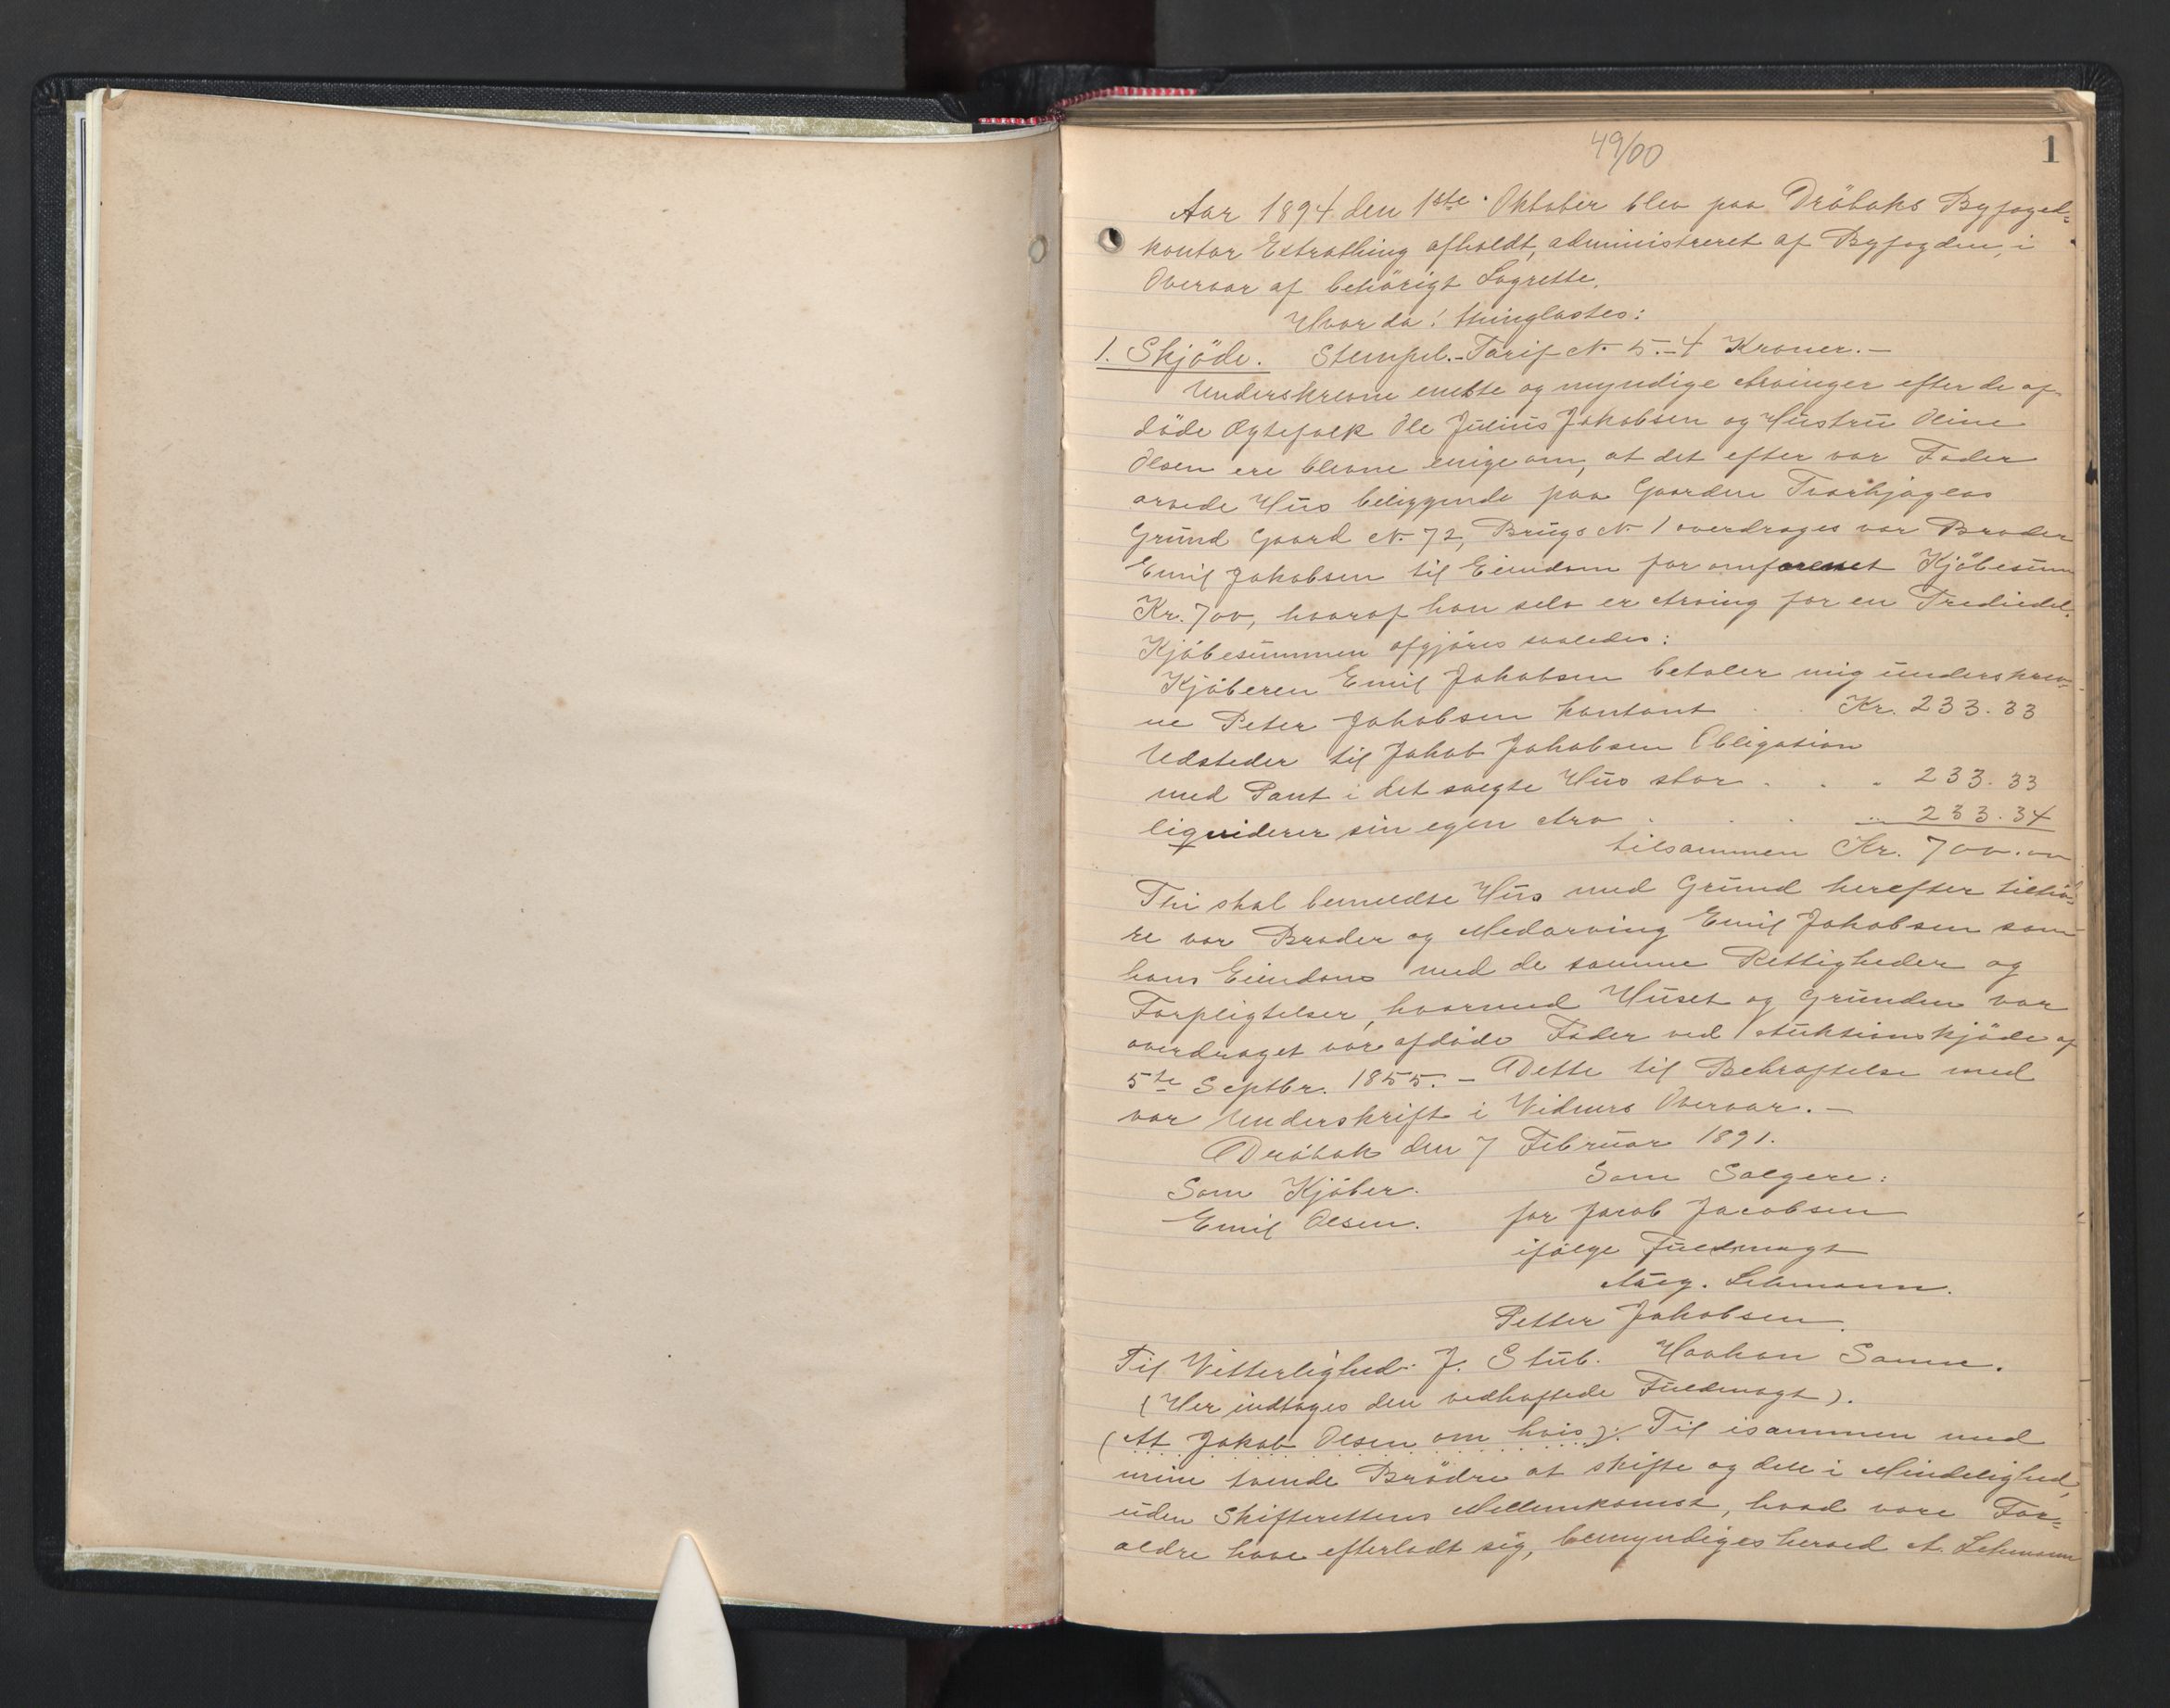 49/00
1
Aar 1894 den 1ste Oktober blev paa Dröbaks Byfoged-
kontor Extrathing afholdt, administreret af Byfogden, i
Overvær af behörigt Lagrette.
Hvor da: thinglæstes:
1. Skjöde. Stempel.-Tarif No 5.-4 Kroner.-
Underskrevne eneste og myndige Arvinger efter de af-
döde Ægtefolk Ole Julius Jakobsen og Hustru Oline
Olsen ere blevne enige om, at det efter vor Fader
arvede Hus beliggende paa Gaarden
Grund Gaard No 72, Brugs No 1 overdrages vor Broder
Emil Jakobsen til Eiendom for omforenet Kjöbesum
Kr. 700, hvoraf han selv er Arving for en Trediedel.
Kjöbesummen afgjöres saaledes:
Kjöberen Emil Jakobsen betaler mig underskrev-
ne Peter Jakobsen kontant . . Kr. 233.33
Udsteder til Jakob Jakobsen Obligation
med Pant i det solgte Hus stor . . „ 233.33
liquiderer sin egen Arv . . . „ 233.34
tilsammen Kr. 700.00
Thi skal bemeldte Hus med Grund herefter tilhö-
re vor Broder og Medarving Emil Jakobsen som
hans Eiendom med de samme Rettigheder og
Forpligtelser, hvormed Huset og Grunden var
overdraget vor afdöde Fader ved Auktionsskjöde af
5te Septbr. 1855. - Dette til Bekræftelse med
vor Underskrift i Vidners Overvær.-
Dröbak den 7 Februar 1891.
Som Kjöber. Som Sælgere:
Emil Olsen. for Jacob Jacobsen
ifölge Fuldmagt
Aug. Lehmann.
Petter Jakobsen.
Til Vitterlighed: J. Stub. Haakon Sanne.
(Her indtages den vedhæftede Fuldmagt).
(At Jakob Olsen om hvis): Til isammen med
mine tvende Brödre at skifte og dele i Mindelighed,
uden Skifterettens Mellemkomst, hvad vore For-
ældre have efterladt sig, bemyndiges herved A. Lehmann